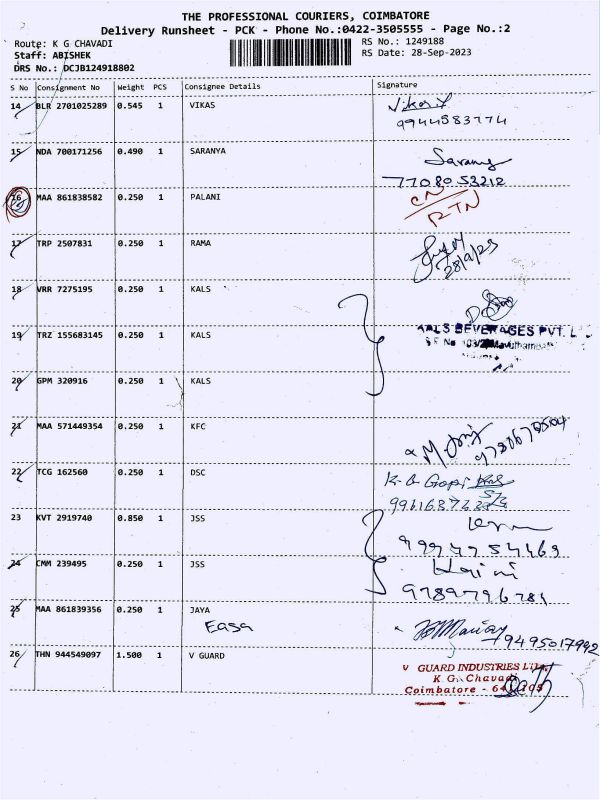 THE PROFESSIONAL COURIERS, COIMBATORE
Delivery Runsheet - PCK - Phone No.:0422-3505555 - Page No.:2
Route: K G CHAVADI
RS No.: 1249188
Staff: ABISHEK
RS Date: 28-Sep-2023
DRS No.: DCJB124918802
S No Consignment No Weight PCS Consignee Details Signature
14 BLR 2701025289 0.545 1 VIKAS
9944583774
15 NDA 700171256 0.490 1 SARANYA Sarany
7708053212
16 MAA 861838582 0.250 1 PALANI
RTN
17 TRP 2507831 0.250 1 RAMA
28/9/23
18 VRR 7275195 0.250 1 KALS
19 TRZ 155683145 0.250 1 KALS KALS BEVERAGES PVT. L
20 GPM 320916 0.250 1 KALS
21 MAA 571449354 0.250 1 KFC
22 TCG 162560 0.250 1 DSC K.G Gopi
23 KVT 2919740 0.850 1 JSS
9994754469
24 CMM 239495 0.250 1 JSS Harini
9789796781
25 MAA 861839356 0.250 1 JAYA
Easa
9495017992
26 THN 944549097 1.500 1 V GUARD
V GUARD INDUSTRIES LTD.
K G. Chavadi
Coimbatore - 641105